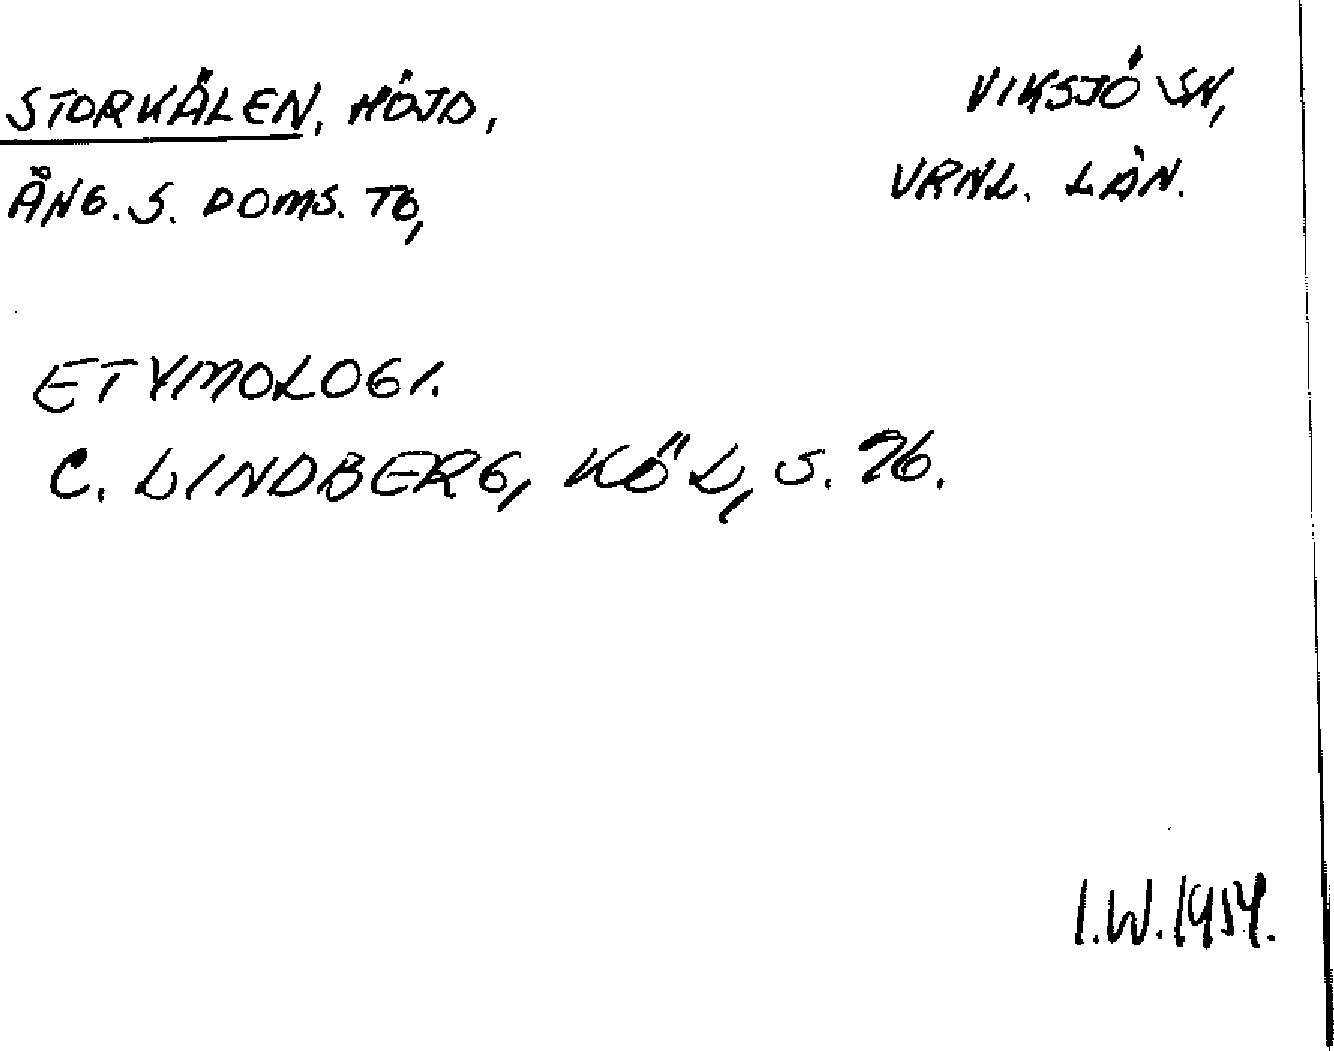 STORKÄLEN, HÖJD,
VIKSJÖ SN,
ÅNG. S. DOMS. TG,
VRNL. LÄN.
ETYMOLOGI.
C. LINDBERG, KÖL, S. 26.
I.W. 1954.